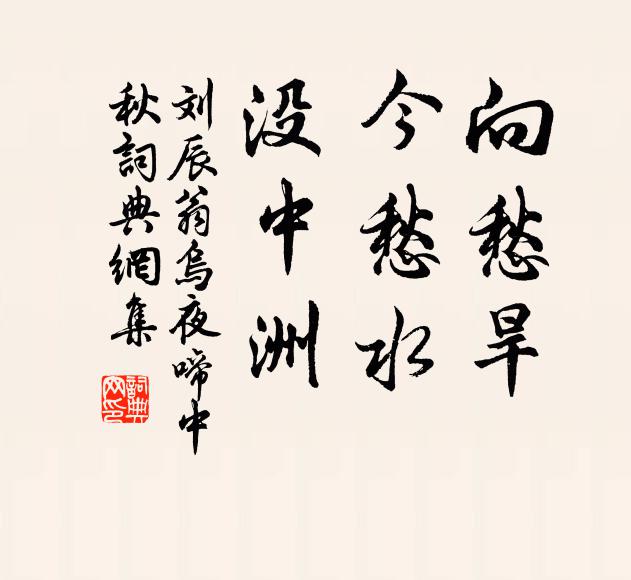 向愁旱
今愁水
没中洲
刘辰翁烏夜啼中
秋詞典網集
詞典网印